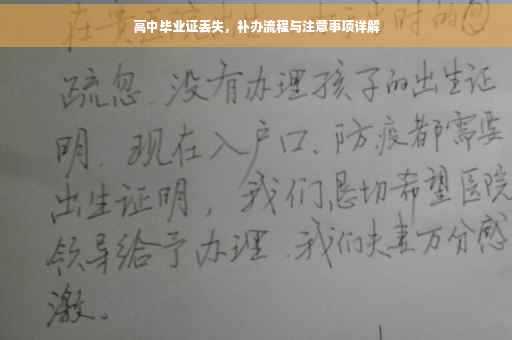 高中毕业证丢失，补办流程与注意事项详解
疏忽、没有办理孩子的出生证
明、现在入户口、防疫都需要
出生证明，我们恳切希望医院
领导给予办理、我们夫妻万分感
激。